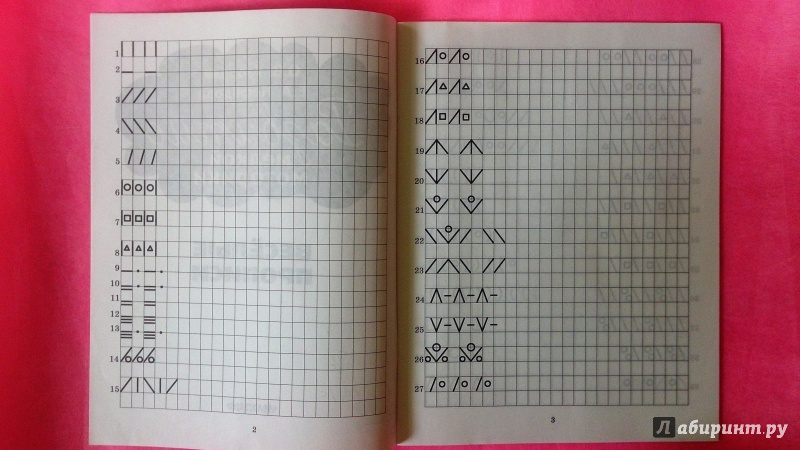 1
2
3
4
5
6
7
8
9
10
11
12
13
14
15
2
16
17
18
19
20
21
22
23
24
25
26
27
3
Лабиринт.ру